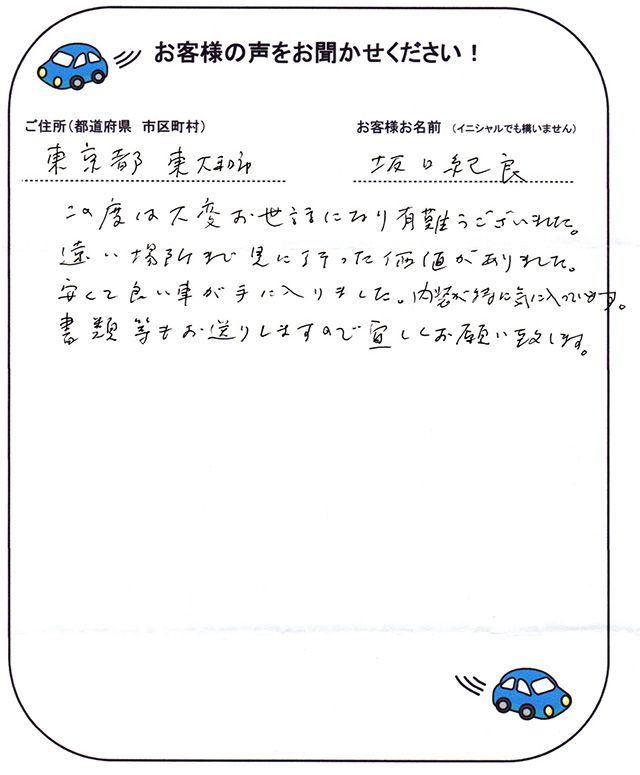 お客様の声をお聞かせください！
ご住所(都道府県　市区町村)
お客様お名前　(イニシャルでも構いません)
東京都　東大和市
坂口紀良
この度は大変お世話になり有難うございました。
遠い場所まで見に行った価値がありました。
安くて良い車が手に入りました。内装が特に気に入っています。
書類等もお送りしますので宜しくお願い致します。